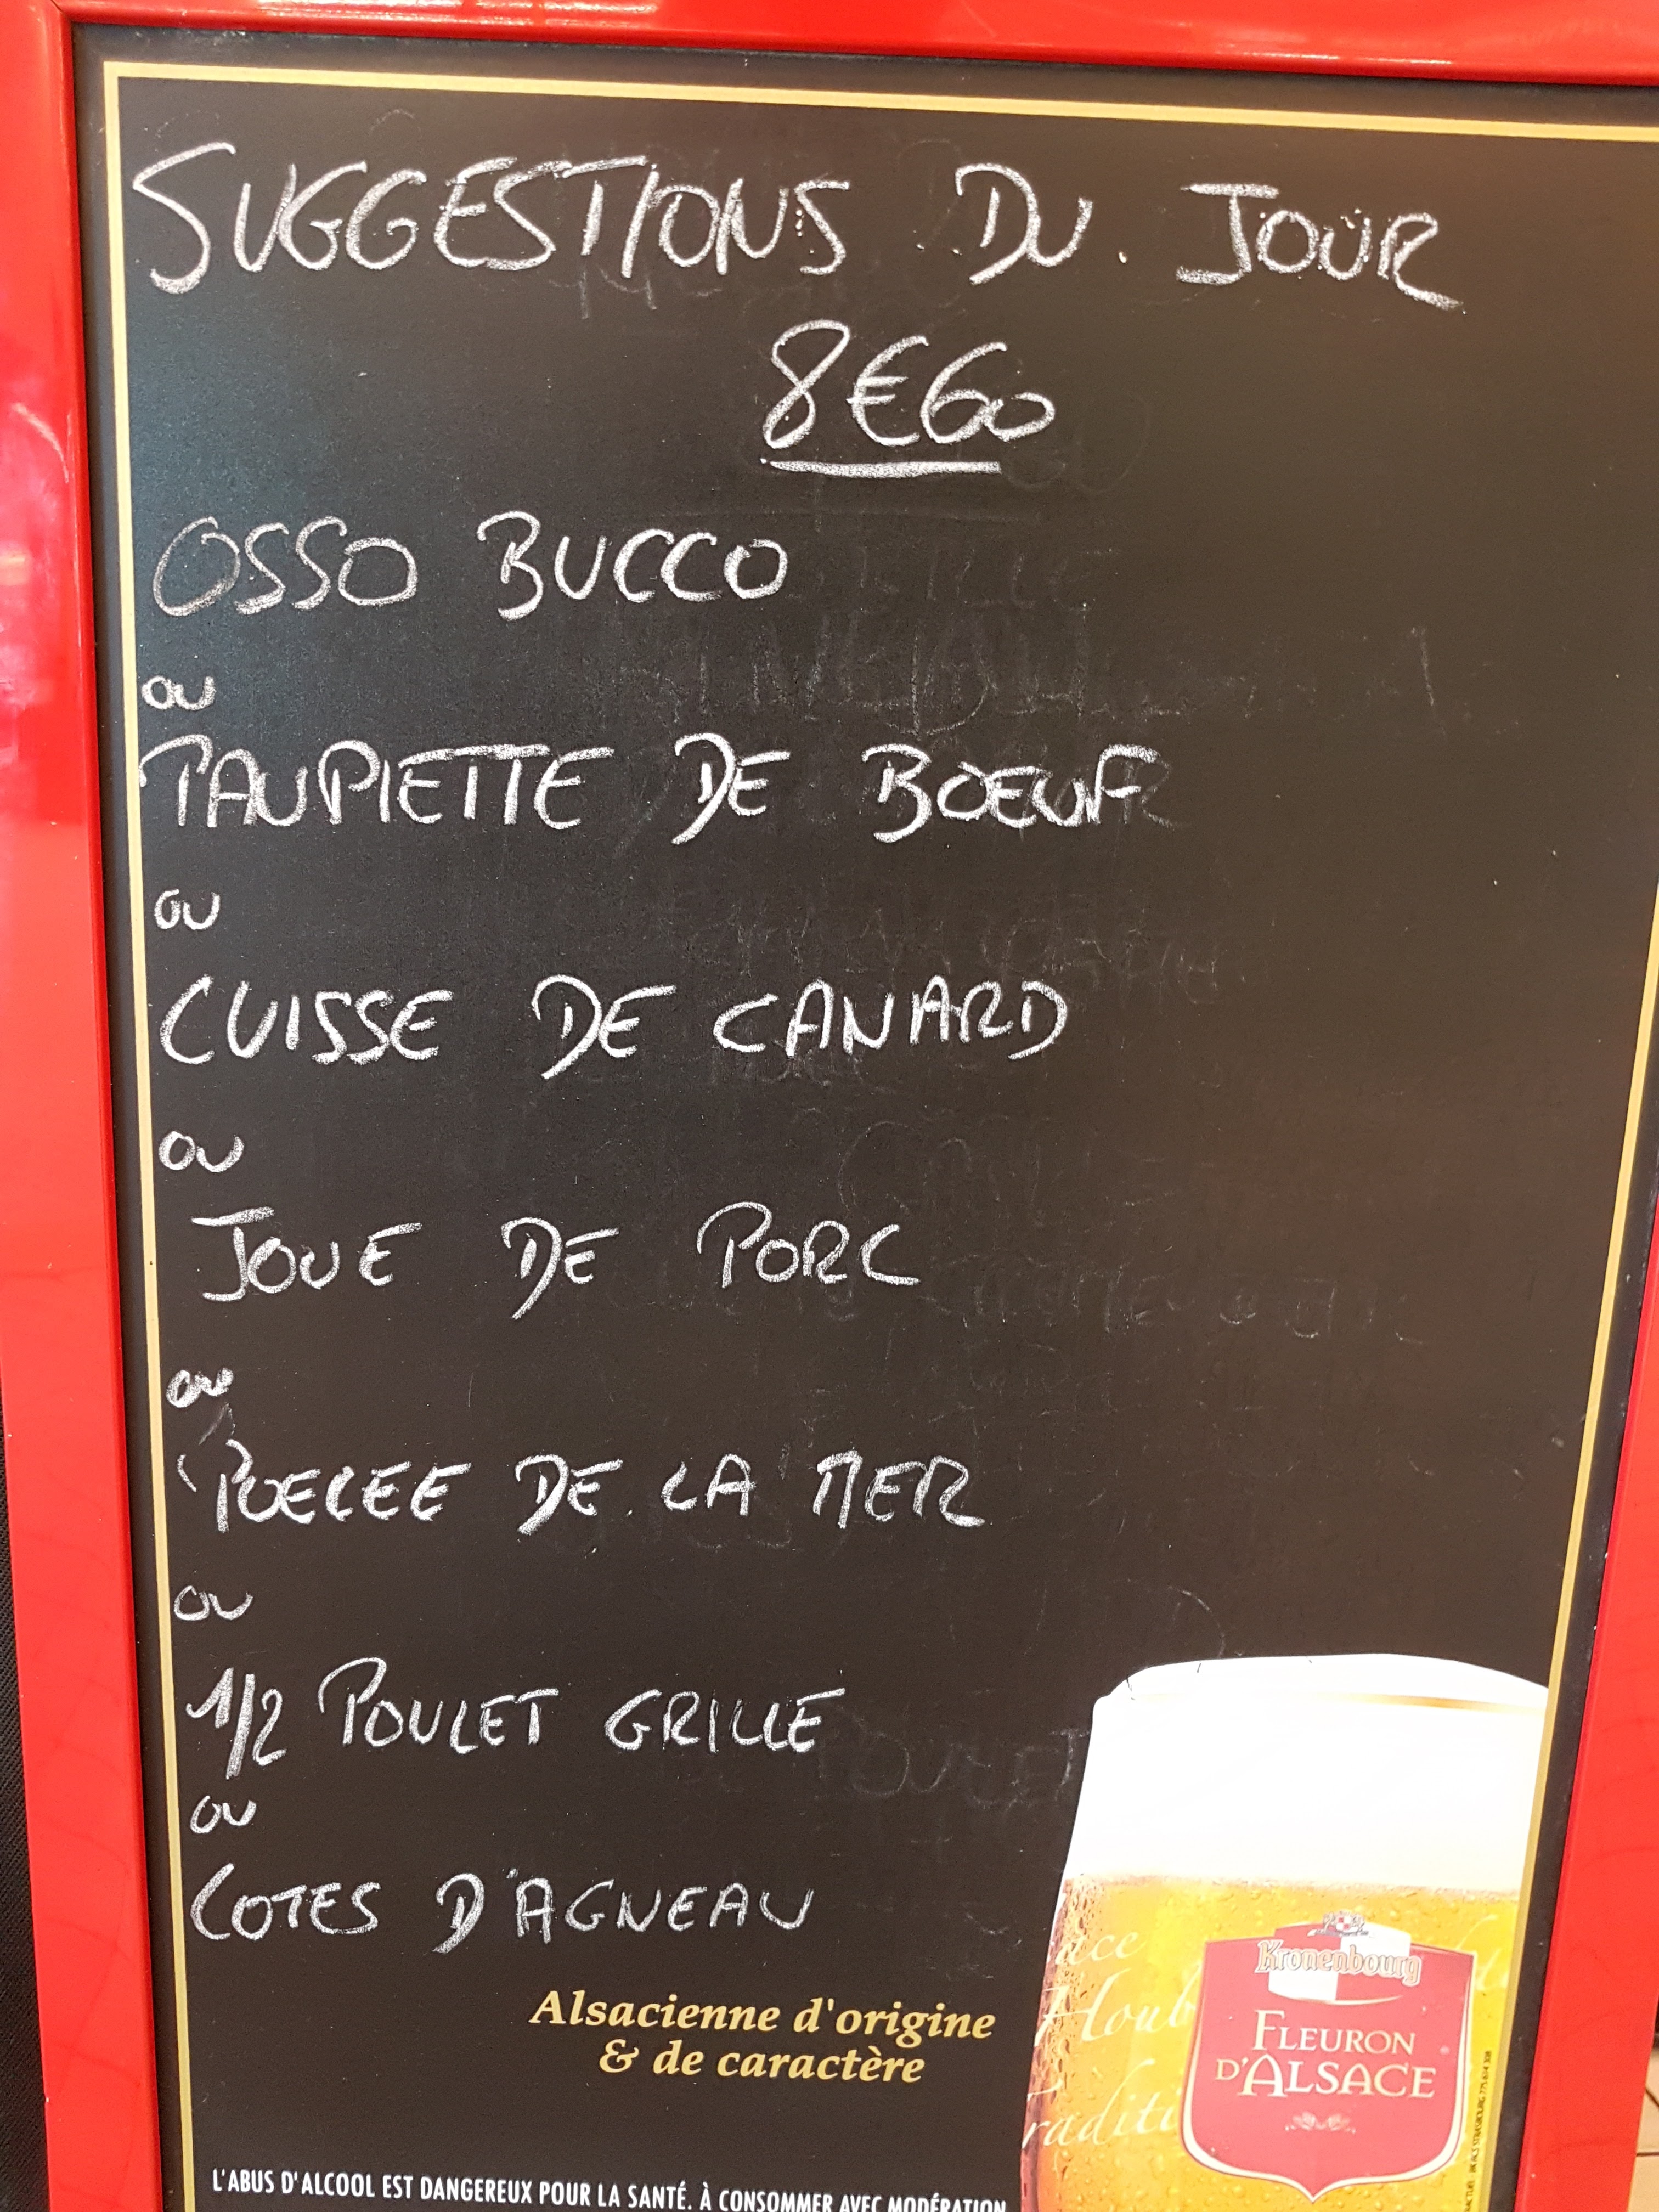 SUGGESTIONS DU. JOUR
8€60
OSSO BUCCO
ou
PAUPIETTE DE BOEUF
ou
CUISSE DE CANARD
ou
JOUE DE PORC
ou
POELEE DE LA MER
ou
1/2 POULET GRILLE
ou
COTES D'AGNEAU
Alsacienne d'origine
& de caractère
Kronenbourg
FLEURON
D'ALSACE
L'ABUS D'ALCOOL EST DANGEREUX POUR LA SANTÉ. À CONSOMMER AVEC MODÉRATION